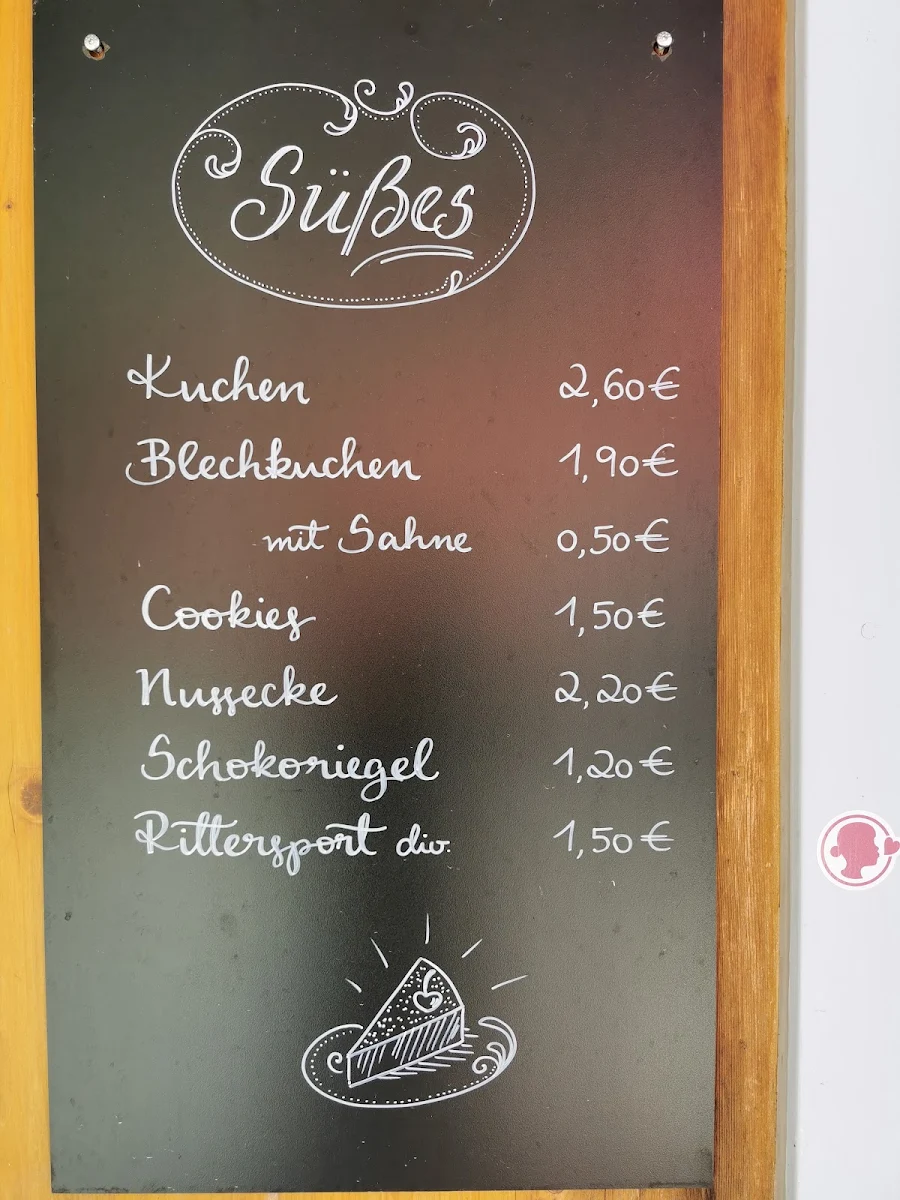 Süßes
Kuchen 2,60€
Blechkuchen 1,90€
mit Sahne 0,50€
Cookies 1,50€
Nussecke 2,20€
Schokoriegel 1,20€
Rittersport div. 1,50€